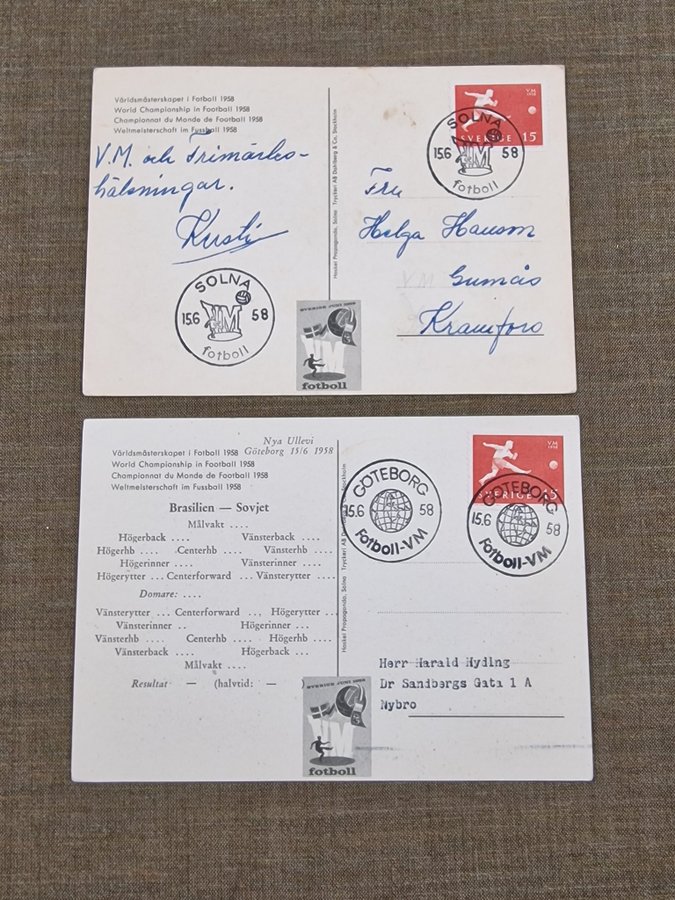 Världsmästerskapet i Fotboll 1958
World Championship in Football 1958
Championnat du Monde de Football 1958
Weltmeisterschaft im Fussball 1958
V.M. och Frimärks-
hälsningar.
Kusti
SOLNA
15.6 VM 58
fotboll
Haskel Propaganda, Solna Tryckeri AB Dahlberg & Co, Stockholm
V M
1958
SVERIGE 15
SOLNA
15.6 VM 58
fotboll
Fru
Helga
Gumås
Kramfors
SVERIGE JUNI 1958
VM
fotboll
Nya Ullevi
Göteborg 15/6 1958
Världsmästerskapet i Fotboll 1958
World Championship in Football 1958
Championnat du Monde de Football 1958
Weltmeisterschaft im Fussball 1958
Brasilien — Sovjet
Målvakt ....
Högerback .... Vänsterback ....
Högerhb .... Centerhb .... Vänsterhb ....
Högerinner .... Vänsterinner ....
Högerytter ... Centerforward ... Vänsterytter ....
Domare: ....
Vänsterytter ... Centerforward ... Högerytter ....
Vänsterinner .. Högerinner ...
Vänsterhb .... Centerhb .... Högerhb ....
Vänsterback .... Högerback ....
Målvakt ....
Resultat — (halvtid: — )
Haskel Propaganda, Solna Tryckeri AB Dahlberg & Co, Stockholm
GÖTEBORG
15.6 58
Fotboll-VM
V M
1958
SVERIGE 15
GÖTEBORG
15.6 58
Fotboll-VM
Herr Harald Nyding
Dr Sandbergs Gata 1 A
Nybro
SVERIGE JUNI 1958
VM
fotboll